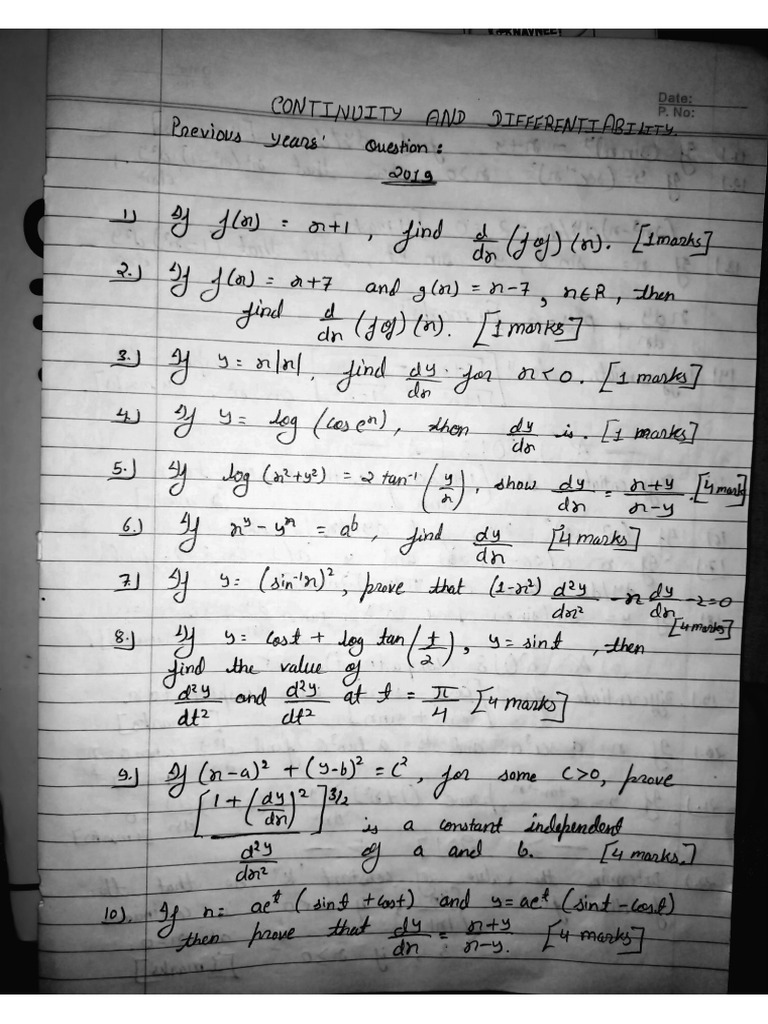 NAVNEET
Date:
P. No:
CONTINUITY AND DIFFERENTIABILITY.
Previous years' Question:
2019
1.) If f(x) = x+1, find d/dx (fof)(x). [1 marks]
2.) If f(x) = x+7 and g(x) = x-7, x∈R, then
find d/dx (fog)(x). [1 marks]
3.) If y = x|x|, find dy/dx for x<0. [1 marks]
4.) If y = log (cos eˣ), then dy/dx is. [1 marks]
5.) If log (x²+y²) = 2 tan⁻¹ (y/x), show dy/dx = x+y/x-y. [4 mark]
6.) If xʸ - yˣ = aᵇ, find dy/dx [4 marks]
7.) If y = (sin⁻¹x)², prove that (1-x²) d²y/dx² - x dy/dx - 2 = 0
[4 marks]
8.) If y = cost + log tan (t/2), y = sint, then
find the value of
d²y/dt² and d²y/dt² at t = π/4 [4 marks]
9.) If (x-a)² + (y-b)² = c², for some c>0, prove
[1 + (dy/dx)²]^3/2 / d²y/dx² is a constant independent
of a and b. [4 marks.]
10). If x = aeᵗ (sint + cost) and y = aeᵗ (sint - cost)
then prove that dy/dx = x+y/x-y. [4 marks]